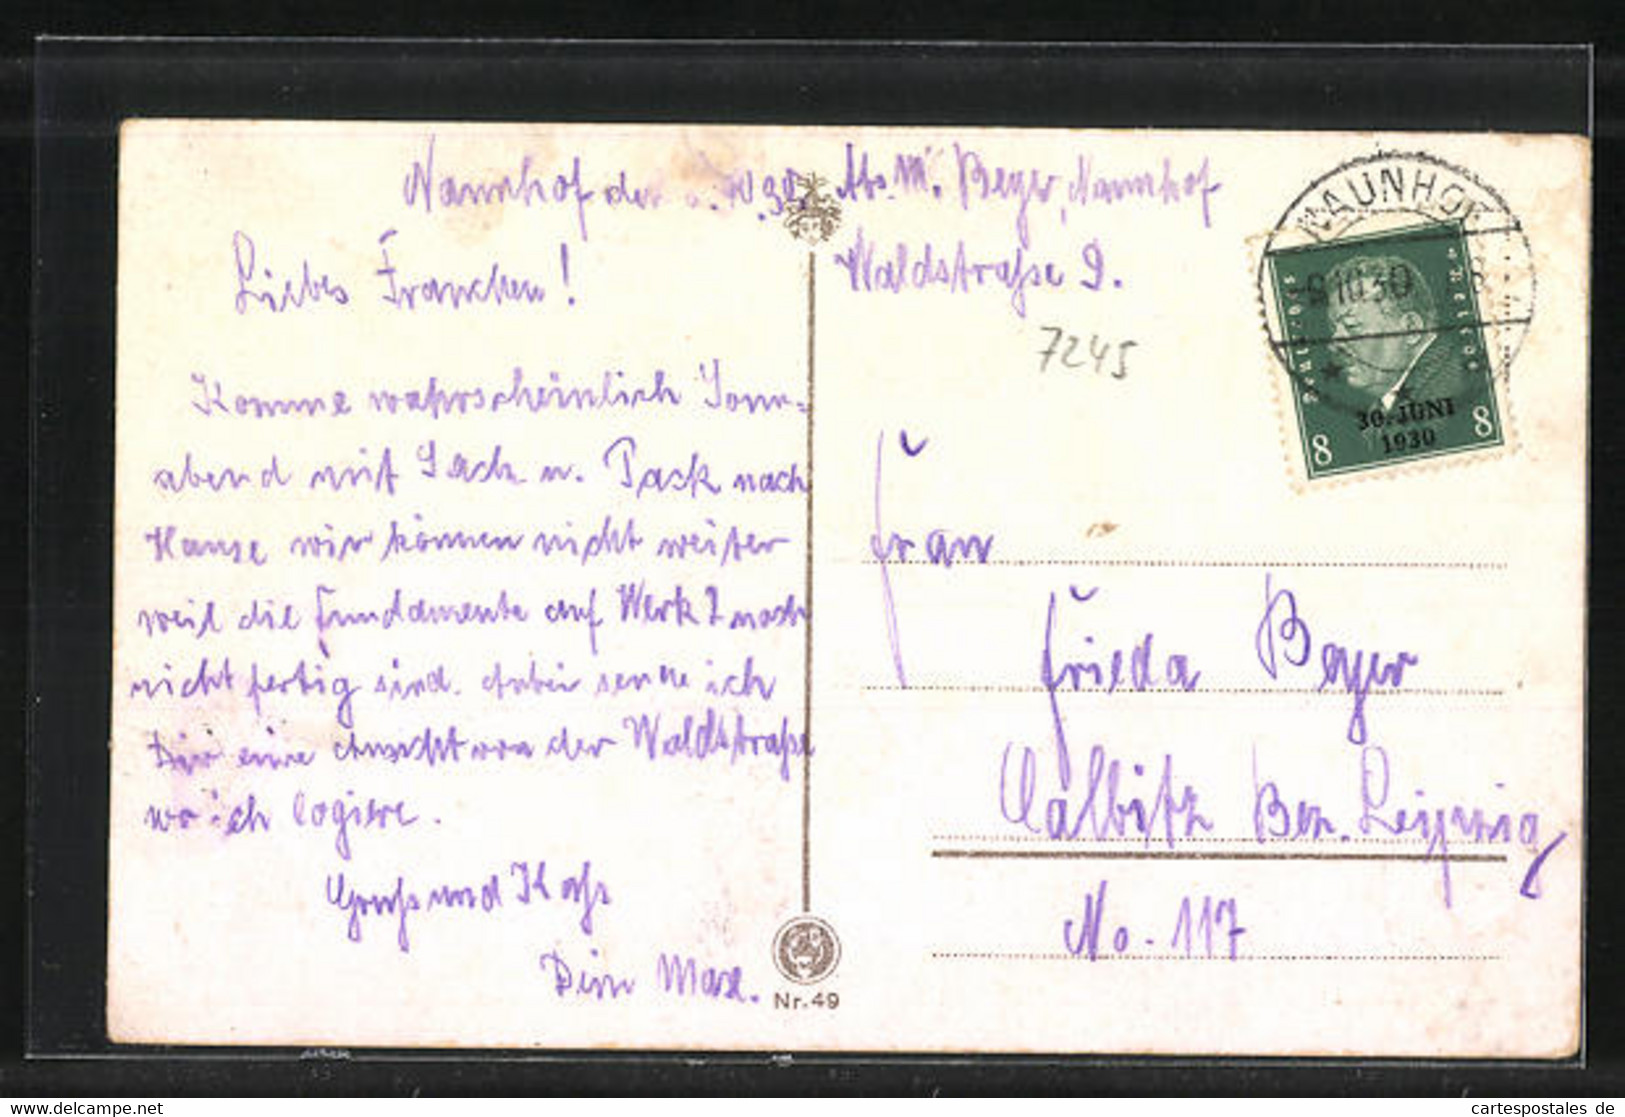 Naunhof den 10.30
Liebes Frauchen!
Komme wahrscheinlich Sonn-
abend mit Sack u. Pack nach
Hause wir können nicht weiter
weil die Fundamente auf Werk 2 noch
nicht fertig sind. Anbei sende ich
Dir eine Ansicht von der Waldstraße
wo ich logiere.
Gruß und Kuß
Dein Max.
Nr. 49
Abs. M. Beyer, Naunhof
Waldstraße 9.
7245
NAUNHOF
10.30
30. JUNI
1930
8 8
Frau
Frieda Beyer
Calbitz Bez. Leipzig
No. 117
cartespostales de